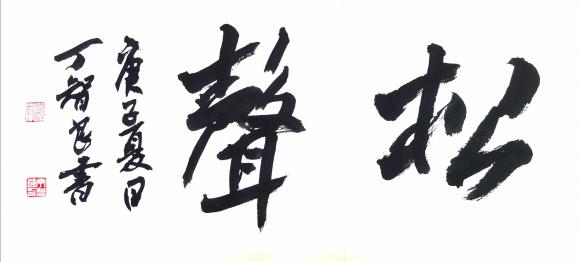 松聲
庚子夏日
丁智良書